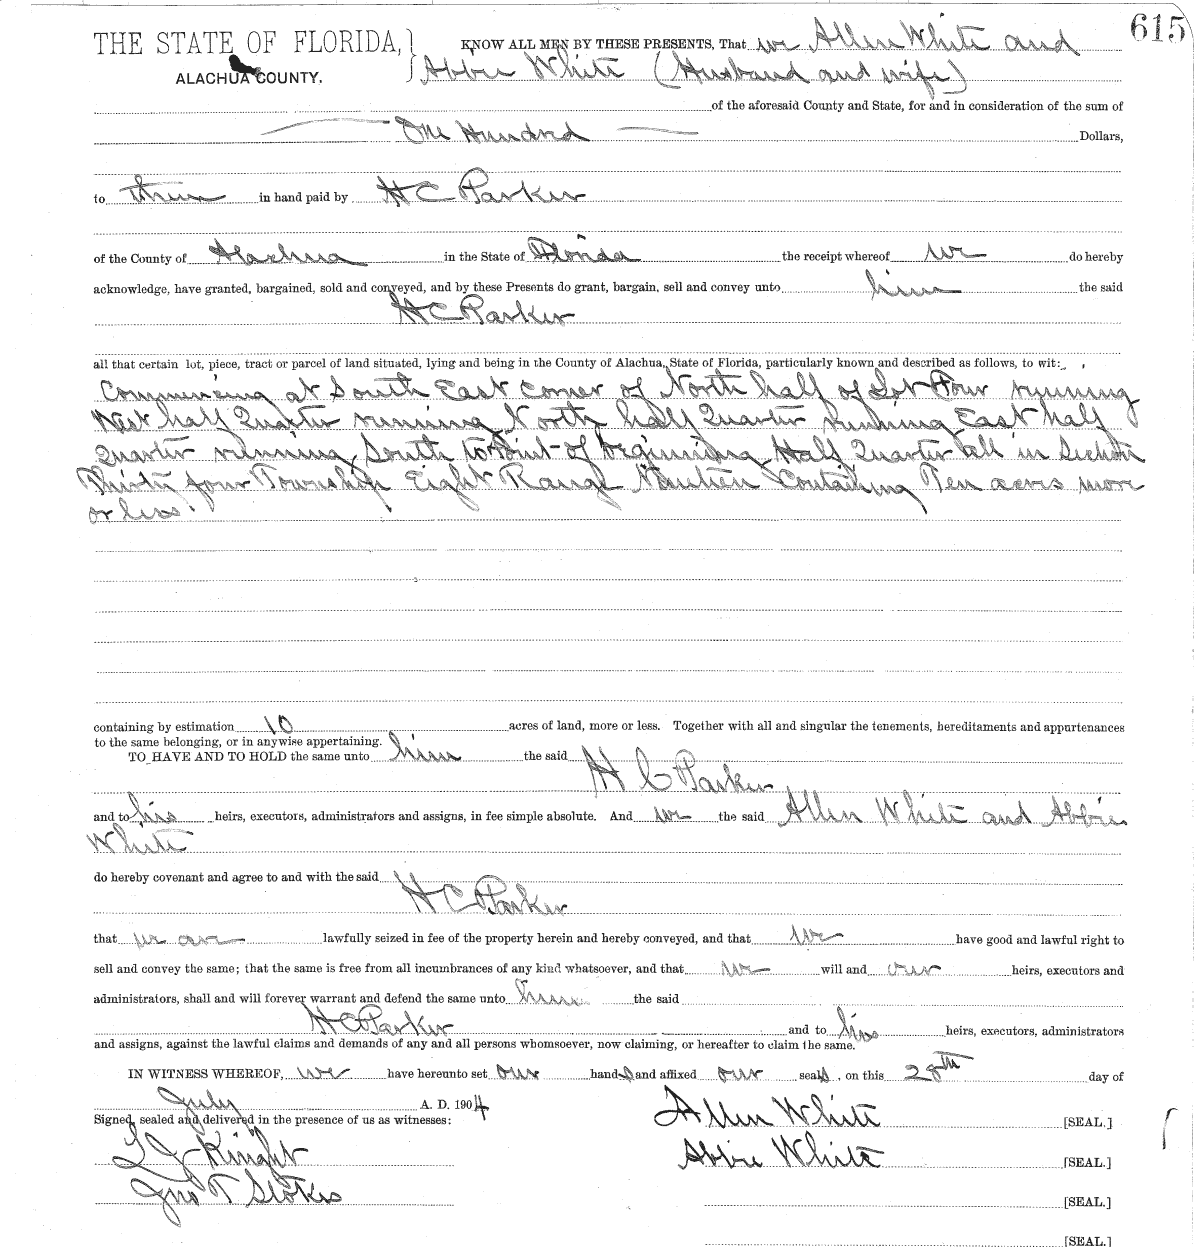 615
THE STATE OF FLORIDA,
ALACHUA COUNTY.
KNOW ALL MEN BY THESE PRESENTS, That we Allen White and
Abbie White (Husband and wife)
of the aforesaid County and State, for and in consideration of the sum of
One Hundred Dollars,
to them in hand paid by H C Parker
of the County of Alachua in the State of Florida the receipt whereof we do hereby
acknowledge, have granted, bargained, sold and conveyed, and by these Presents do grant, bargain, sell and convey unto him the said
H C Parker
all that certain lot, piece, tract or parcel of land situated, lying and being in the County of Alachua, State of Florida, particularly known and described as follows, to wit:
Commencing at South East corner of North half of Lot Four running
West half Quarter running North half Quarter running East half
Quarter running South to Point of beginning Half Quarter all in Section
Thirty four Township Eight Range Nineteen Containing Ten acres more
or less.
containing by estimation 10 acres of land, more or less. Together with all and singular the tenements, hereditaments and appurtenances
to the same belonging, or in anywise appertaining.
TO HAVE AND TO HOLD the same unto him the said
H C Parker
and to his heirs, executors, administrators and assigns, in fee simple absolute. And we the said Allen White and Abbie
White
do hereby covenant and agree to and with the said
H C Parker
that we are lawfully seized in fee of the property herein and hereby conveyed, and that we have good and lawful right to
sell and convey the same; that the same is free from all incumbrances of any kind whatsoever, and that we will and our heirs, executors and
administrators, shall and will forever warrant and defend the same unto him the said
H C Parker and to his heirs, executors, administrators
and assigns, against the lawful claims and demands of any and all persons whomsoever, now claiming, or hereafter to claim the same.
IN WITNESS WHEREOF, we have hereunto set our hands and affixed our seals, on this 28th day of
July A. D. 1904
Signed, sealed and delivered in the presence of us as witnesses:
Allen White [SEAL.]
L J Knight
Abbie White [SEAL.]
Jno T Stokes
[SEAL.]
[SEAL.]